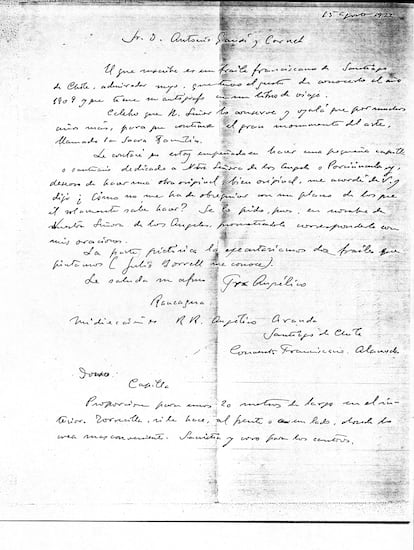 15 Agosto 1922
Sr. D. Antonio Gaudí y Cornet
El que suscribe es un fraile franciscano de Santiago
de Chile, admirador suyo, que tuvo el gusto de conocerlo el año
1909 y que tiene un autógrafo en un libro de viaje.
Celebro que N. Señor lo conserve y ojalá que por muchos
años más, para que continúe el gran monumento del arte,
llamado la Sagra Familia.
Le contaré que estoy empeñado en hacer una pequeña capilla
o santuario dedicado a Ntra Señora de los Angeles o Porciúncula y,
deseoso de hacer una obra original, bien original, me acordé de V. y
dije ¿Cómo no me ha de obsequiar con un plano de los que
él solamente sabe hacer? Se lo pido, pues, en nombre de
Nuestra Señora de los Angeles, prometiéndole corresponderle con
mis oraciones.
La parte pictórica la ejecutaríamos dos frailes que
pintamos (Julio Borrell me conoce).
Le saluda su afmo Fray Angélico
Rancagua
Mi dirección es R. P. Angélico Aranda
Santiago de Chile
Convento Franciscano. Alameda
Capilla
Proporción para unos 20 metros de largo en el in-
terior. Torrecilla, si la hace, al frente o en un lado, donde lo
crea mas conveniente. Sacristía y coro para los cantores.